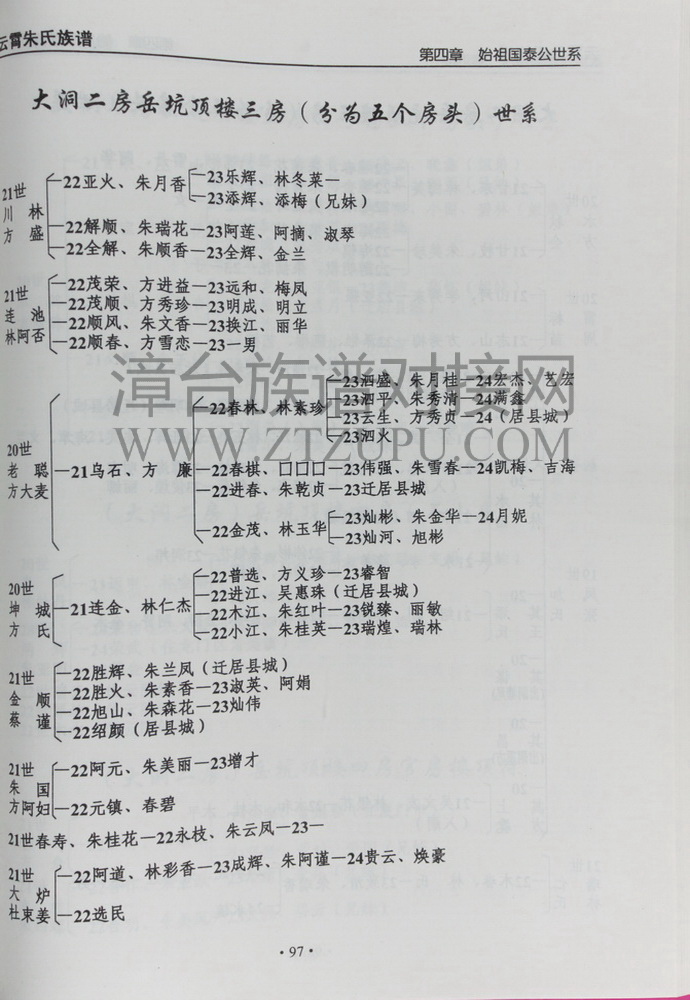 云霄朱氏族谱
第四章 始祖国泰公世系
大洞二房岳坑顶楼三房(分为五个房头)世系
21世
川 林
方 盛
22亚火、朱月香
23乐辉、林冬菜—
23添辉、添梅(兄妹)
22解顺、朱瑞花—23阿莲、阿摘、淑琴
22全解、朱顺香—23全辉、金兰
21世
连 池
林阿否
22茂荣、方进益—23远和、梅凤
22茂顺、方秀珍—23明成、明立
22顺风、朱文香—23换江、丽华
22顺春、方雪恋—23一男
20世
老 聪
方大麦
21乌石、方 廉
22春林、林素珍
23泗盛、朱月桂—24宏杰、艺宏
23泗平、朱秀清—24满鑫
23云生、方秀贞—24(居县城)
23泗火
22春棋、口口口—23伟强、朱雪春—24凯梅、吉海
22进春、朱乾贞—23迁居县城
22金茂、林玉华
23灿彬、朱金华—24月妮
23灿河、旭彬
20世
坤 城
方 氏
21连金、林仁杰
22普选、方义珍—23睿智
22进江、吴惠珠(迁居县城)
22木江、朱红叶—23锐臻、丽敏
22小江、朱桂英—23瑞煌、瑞林
21世
金 顺
蔡 谨
22胜辉、朱兰凤(迁居县城)
22胜火、朱素香—23淑英、阿娟
22旭山、朱森花—23灿伟
22绍颜(居县城)
21世
朱 国
方阿妇
22阿元、朱美丽—23增才
22元镇、春碧
21世春寿、朱桂花—22永枝、朱云凤—23—
21世
大 炉
杜束姜
22阿道、林彩香—23成辉、朱阿谨—24贵云、焕豪
22选民
漳台族谱对接网
WWW.ZTZUPU.COM
·97·